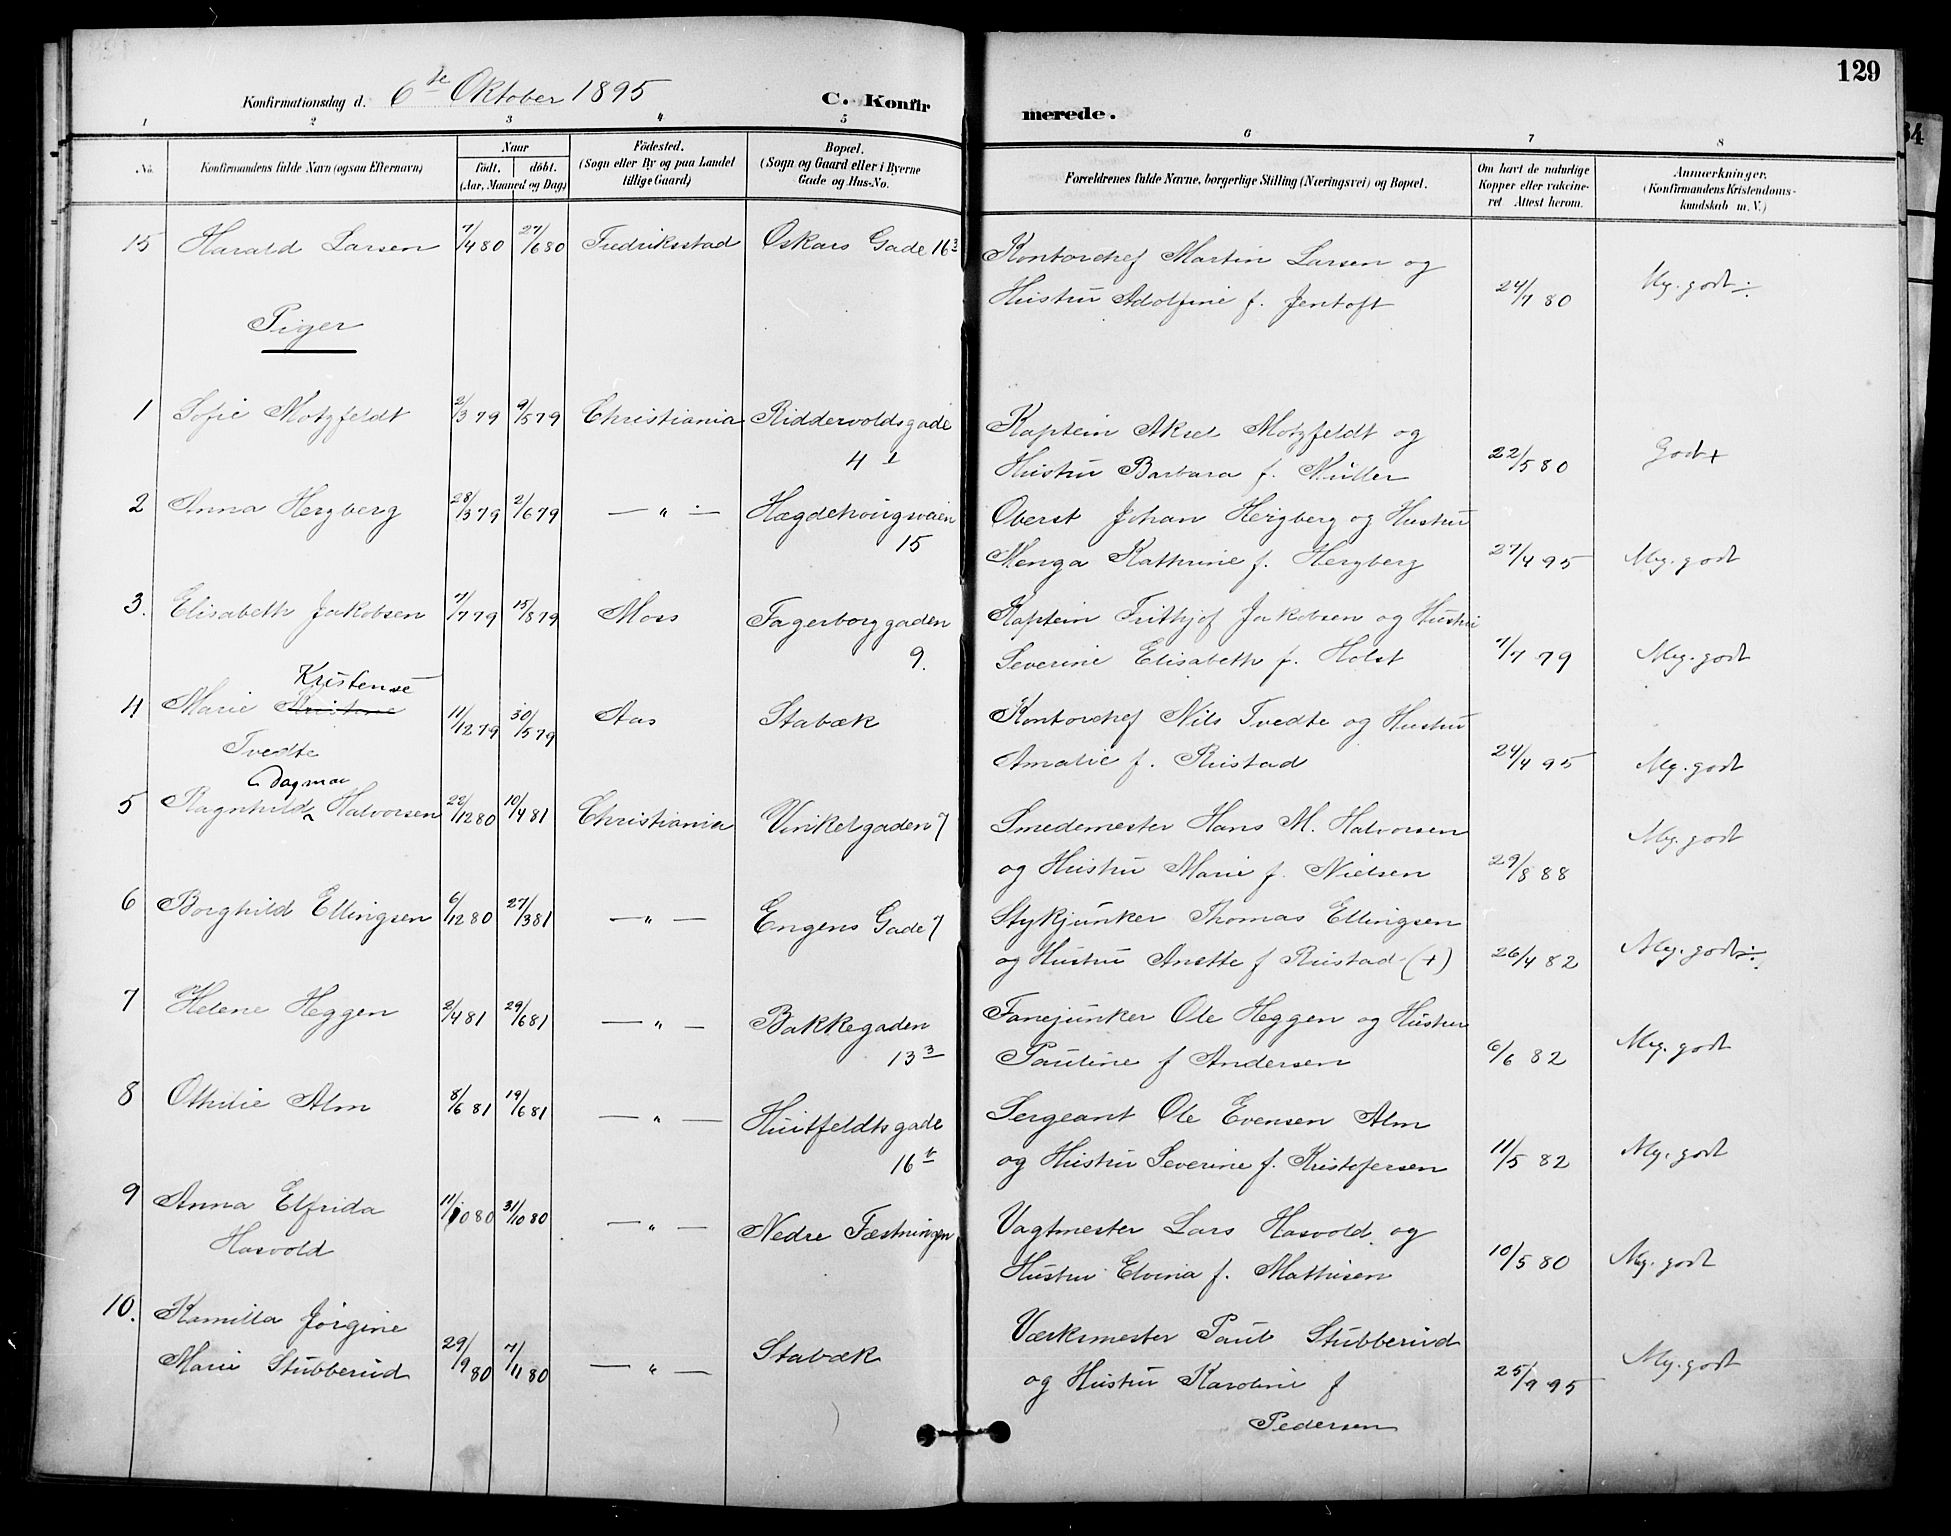 129
Konfirmationsdag d. 6te Oktober 1895 C. Konfirmerede.
1 2 3 4 5 6 7 8
No. Konfirmandens fulde Navn (ogsaa Efternavn) Naar født. døbt. (Aar, Maaned og Dag) Födested. (Sogn eller By og paa Landet tillige Gaard) Bopæl. (Sogn og Gaard eller i Byerne Gade og Hus-No. Forældrenes fulde Navne, borgerlige Stilling (Næringsvei) og Bopæl. Om havt de naturlige Kopper eller vakcineret Attest herom. Anmærkninger. (Konfirmandens Kristendomskundskab m.V.)
15 Harald Larsen 7/4 80 27/6 80 Fredriksstad Oskars Gade 16 3 Kontorchef Martin Larsen og
Hustru Adolfine f. Jentoft 24/7 80 Mg. godt ÷
Piger
1 Sofie Motzfeldt 2/3 79 9/5 79 Christiania Riddervoldsgade Kaptein Aksel Motzfeldt og
4 I Hustru Barbara f. Müller 22/5 80 Godt +
2 Anna Herzberg 28/3 79 2/6 79 — " — Hægdehougsveien Oberst Johan Herzberg og Hustru
15 Menga Kathrine f. Herzberg 27/4 95 Mg. godt
3. Elisabeth Jakobsen 7/7 79 15/8 79 Moss Fagerborggaden Kaptein Frithjof Jakobsen og Hustru
9. Severine Elisabeth f. Holst 7/7 79 Mg. godt
Kristense
4 Marie Kristine 11/12 79 30/5 79 Aas Stabæk Kontorchef Nils Tvedte og Hustru
Tvedte Amalie f. Rustad 24/4 95 Mg. godt
Dagmar
5 Ragnhild Halvorsen 22/12 80 10/4 81 Christiania Vinkelgaden 7 Smedemester Hans M. Halvorsen
og Hustru Marie f. Nielsen 29/8 88 Mg. godt
6 Borghild Ellingsen 6/12 80 27/3 81 — " — Engens Gade 7 Stykjunker Thomas Ellingsen
og Hustru Anette f Rustad (+) 26/4 82 Mg. godt ÷
7 Helene Heggen 2/4 81 29/6 81 — " — Bakkegaden Fanejunker Ole Heggen og Hustru
13 3 Pauline f Andersen 6/6 82 Mg. godt
8 Othilie Alm 8/6 81 19/6 81 — " — Huitfeldtsgade Sergeant Ole Evensen Alm
16 og Hustru Severine f. Kristofersen 11/5 82 Mg. godt
9 Anna Elfrida 11/10 80 31/10 80 — " — Nedre Fæstningen Vagtmester Lars Hasvold og
Hasvold Hustru Elvina f. Mathisen 10/5 80 Mg. godt
10. Kamilla Jørgine Værksmester Paul Stubberud
Marie Stubberud 29/9 80 7/11 80 — " — Stabæk og Hustru Karoline f 25/9 95 Mg. godt
Pedersen